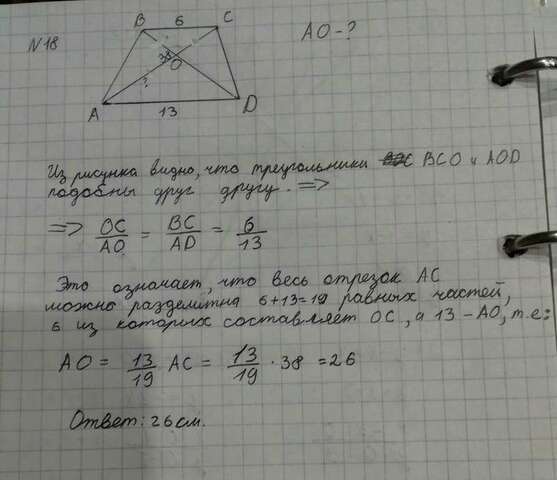 N18
B 6 C
AO-?
38
O
?
A 13 D
Из рисунка видно, что треугольники BCO и AOD
подобны друг другу. =>
=> OC/AO = BC/AD = 6/13
Это означает, что весь отрезок AC
можно разделитна 6+13=19 равных частей,
6 из которых составляет OC, а 13-AO, т.е:
AO = 13/19 AC = 13/19 · 38 = 26
Ответ: 26 см.